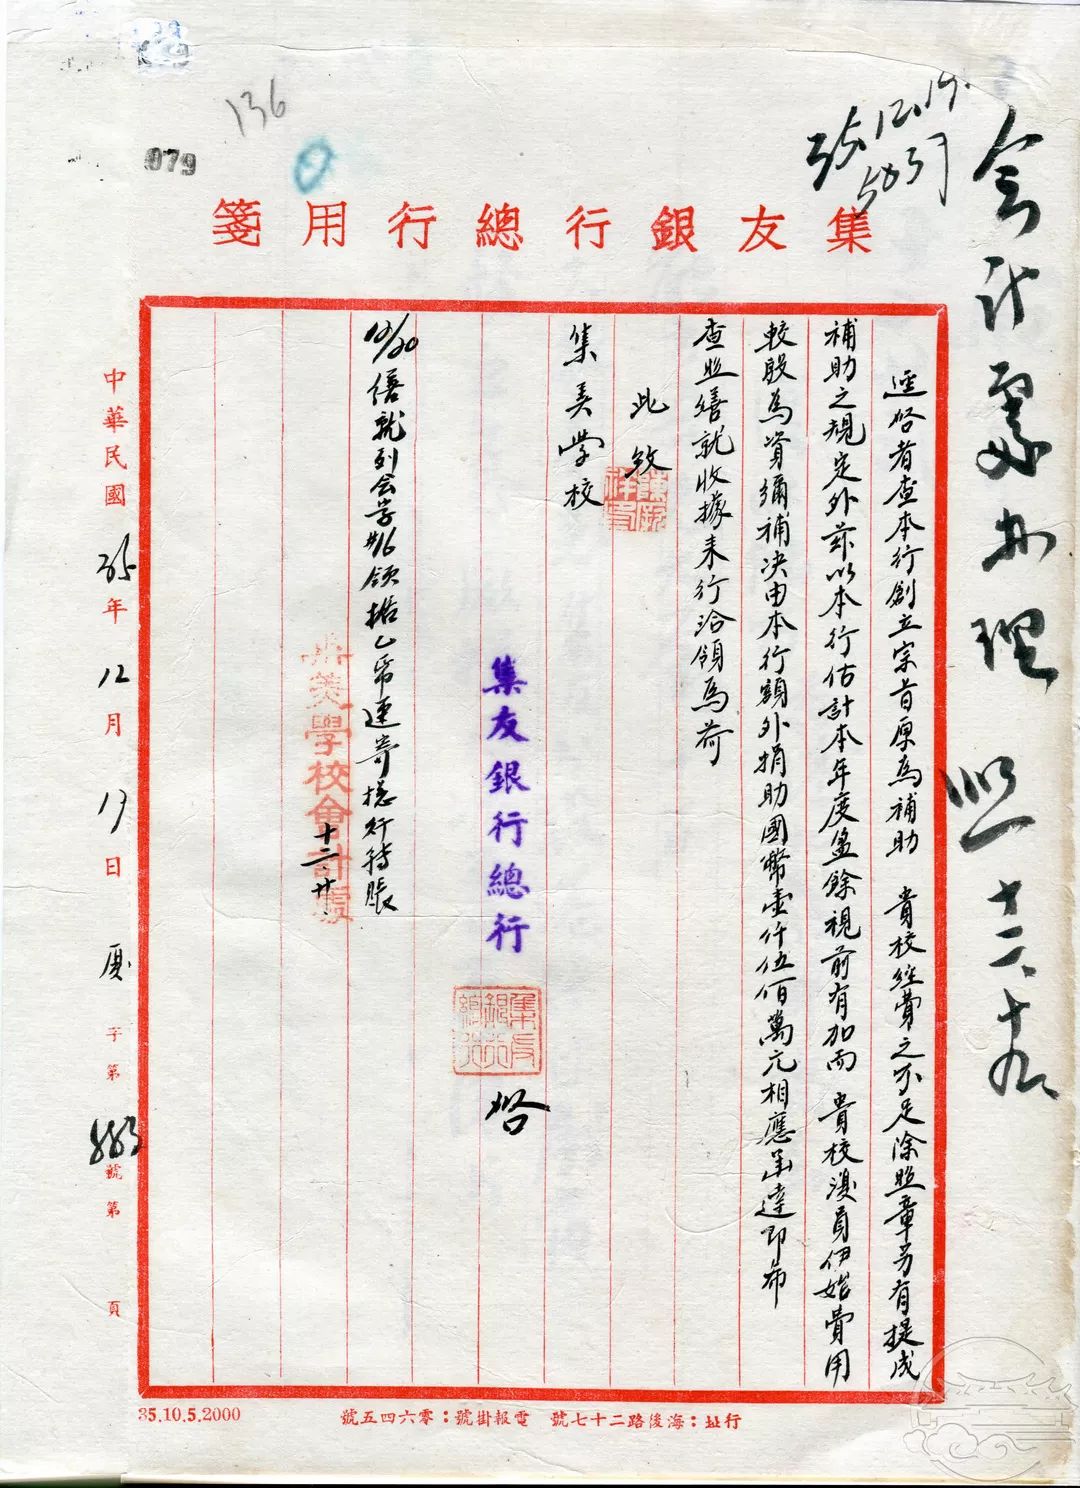 136
079
35.12.19.
5837
集友銀行總行用箋
会計處办理 十二、十九
逕啓者查本行創立宗旨原為補助 貴校經費之不足除照章另有提成
補助之規定外茲以本行估計本年度盈餘視前有加而 貴校復員伊始費用
較殷為資彌補決由本行額外捐助國幣壹仟伍佰萬元相應函達即希
查照繕就收據來行洽領為荷
此致
集美学校
集友銀行總行
集友銀行總行
啓
12/20 繕就到会字#16領据乙帋連寄總行轉賬
集美學校會計處
十二、廿、
中華民國35年12月17日厦字第883號第 頁
行址：海後路二十七號 電報掛號：零六四五號
35.10.5.2000